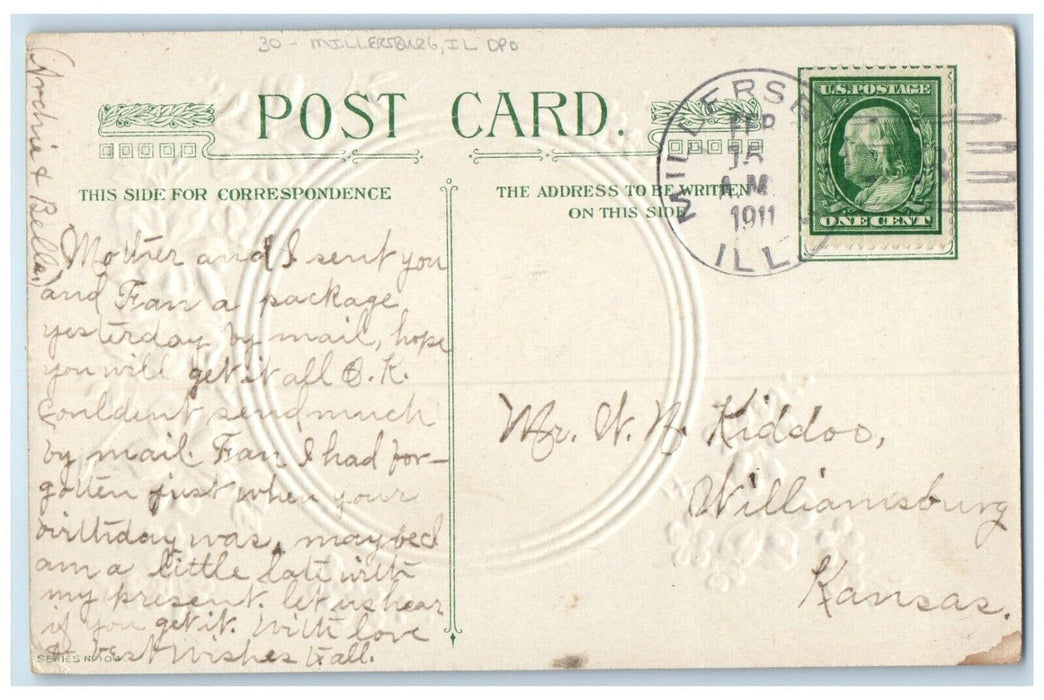 30 - MILLERSBURG, IL DPO
POST CARD.
THIS SIDE FOR CORRESPONDENCE
THE ADDRESS TO BE WRITTEN
ON THIS SIDE
MILLERSBURG
FEB
15
A.M.
1911
ILL.
U.S. POSTAGE
ONE CENT
Archie & Belle.
Mother and I sent you
and Fan a package
yesterday by mail, hope
you will get it all O.K.
Couldent send much
by mail. Fan I had for-
gotten just when your
birthday was, maybe I
am a little late with
my present. let us hear
if you get it. With love
& best wishes to all.
Mr. W. N. Kiddoo,
Williamsburg
Kansas.
SERIES No